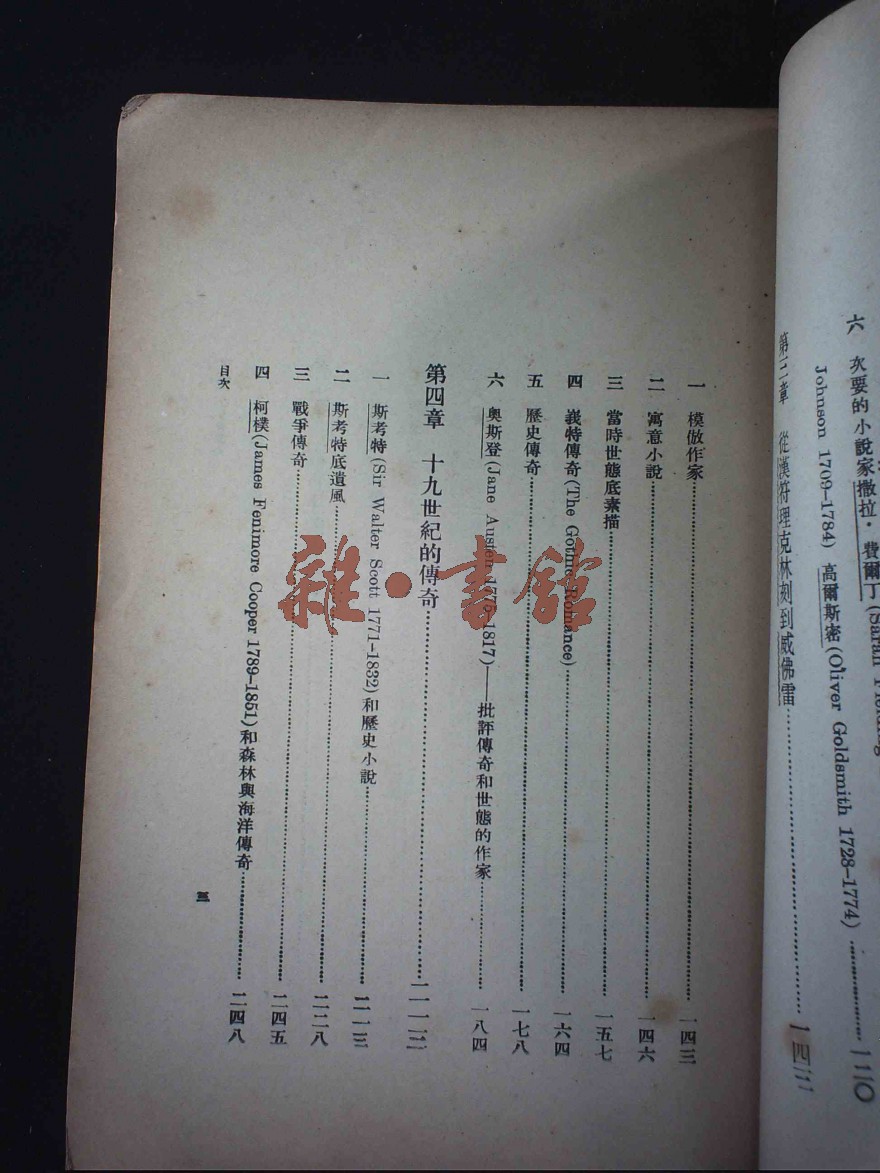 六 次要的小說家撒拉・費爾丁(Sarah Fielding
Johnson 1709–1784) 高爾斯密(Oliver Goldsmith 1728–1774)……一二〇
第三章 從漢符理克林刻到威佛雷……一四三
一 模倣作家……一四三
二 寓意小說……一四六
三 當時世態底素描……一五七
四 峩特傳奇(The Gothic Romance)……一六四
五 歷史傳奇……一七八
六 奧斯登(Jane Austen 1775–1817)——批評傳奇和世態的作家……一八四
第四章 十九世紀的傳奇……二一三
一 斯考特(Sir Walter Scott 1771–1832)和歷史小說……二一三
二 斯考特底遺風……二二八
三 戰爭傳奇……二四五
四 柯樸(James Fenimore Cooper 1789–1851)和森林與海洋傳奇……二四八
目次
三
雜・書館